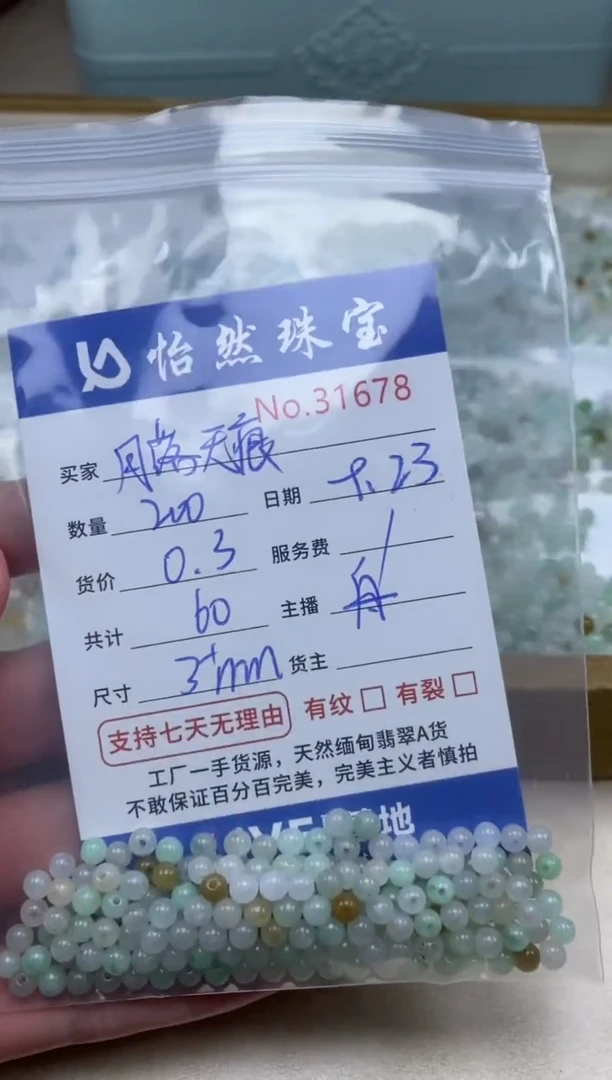 怡然珠宝
No.31678
买家 月落无痕
数量 200 日期 7.23
货价 0.3 服务费 /
共计 60 主播 舟
尺寸 3+mm 货主
支持七天无理由 有纹 □ 有裂 □
工厂一手货源，天然缅甸翡翠A货
不敢保证百分百完美，完美主义者慎拍
地